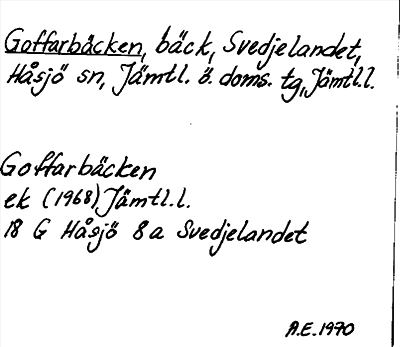 Goffarbäcken, bäck, Svedjelandet,
Håsjö sn, Jämtl. ö. doms. tg, Jämtl.l.
Goffarbäcken
ek (1968) Jämtl.l.
18 G Håsjö 8a Svedjelandet
A.E. 1970